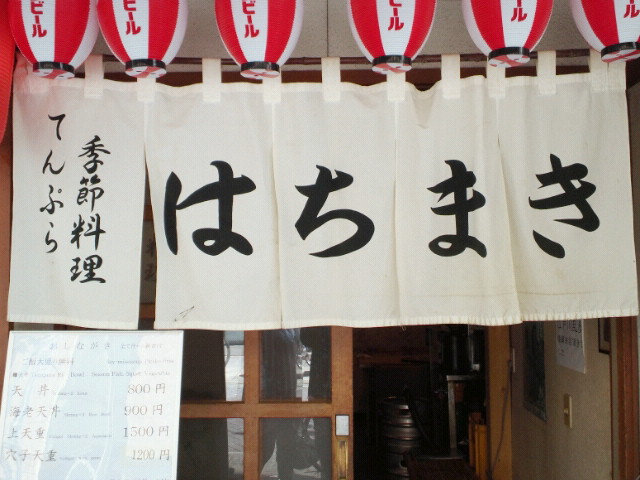 ビール
ビール
ビール
ビール
ビール
ビール
はちまき
季節料理
てんぷら
おしながき
天丼 800円
海老天丼 900円
上天重 1500円
穴子天重 1200円